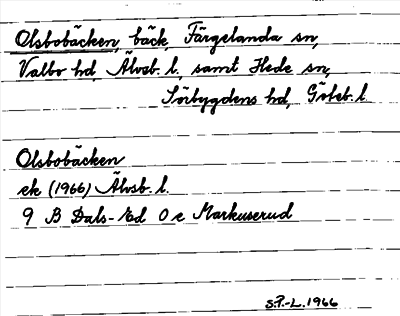 Olsbobäcken, bäck, Färgelanda sn,
Valbo hd, Älvsb. l. samt Hede sn,
Sörbygdens hd, Göteb. l
Olsbobäcken
ek (1966) Älvsb. l.
9 B Dals-Ed 0 e Markuserud
S.P.-L. 1966